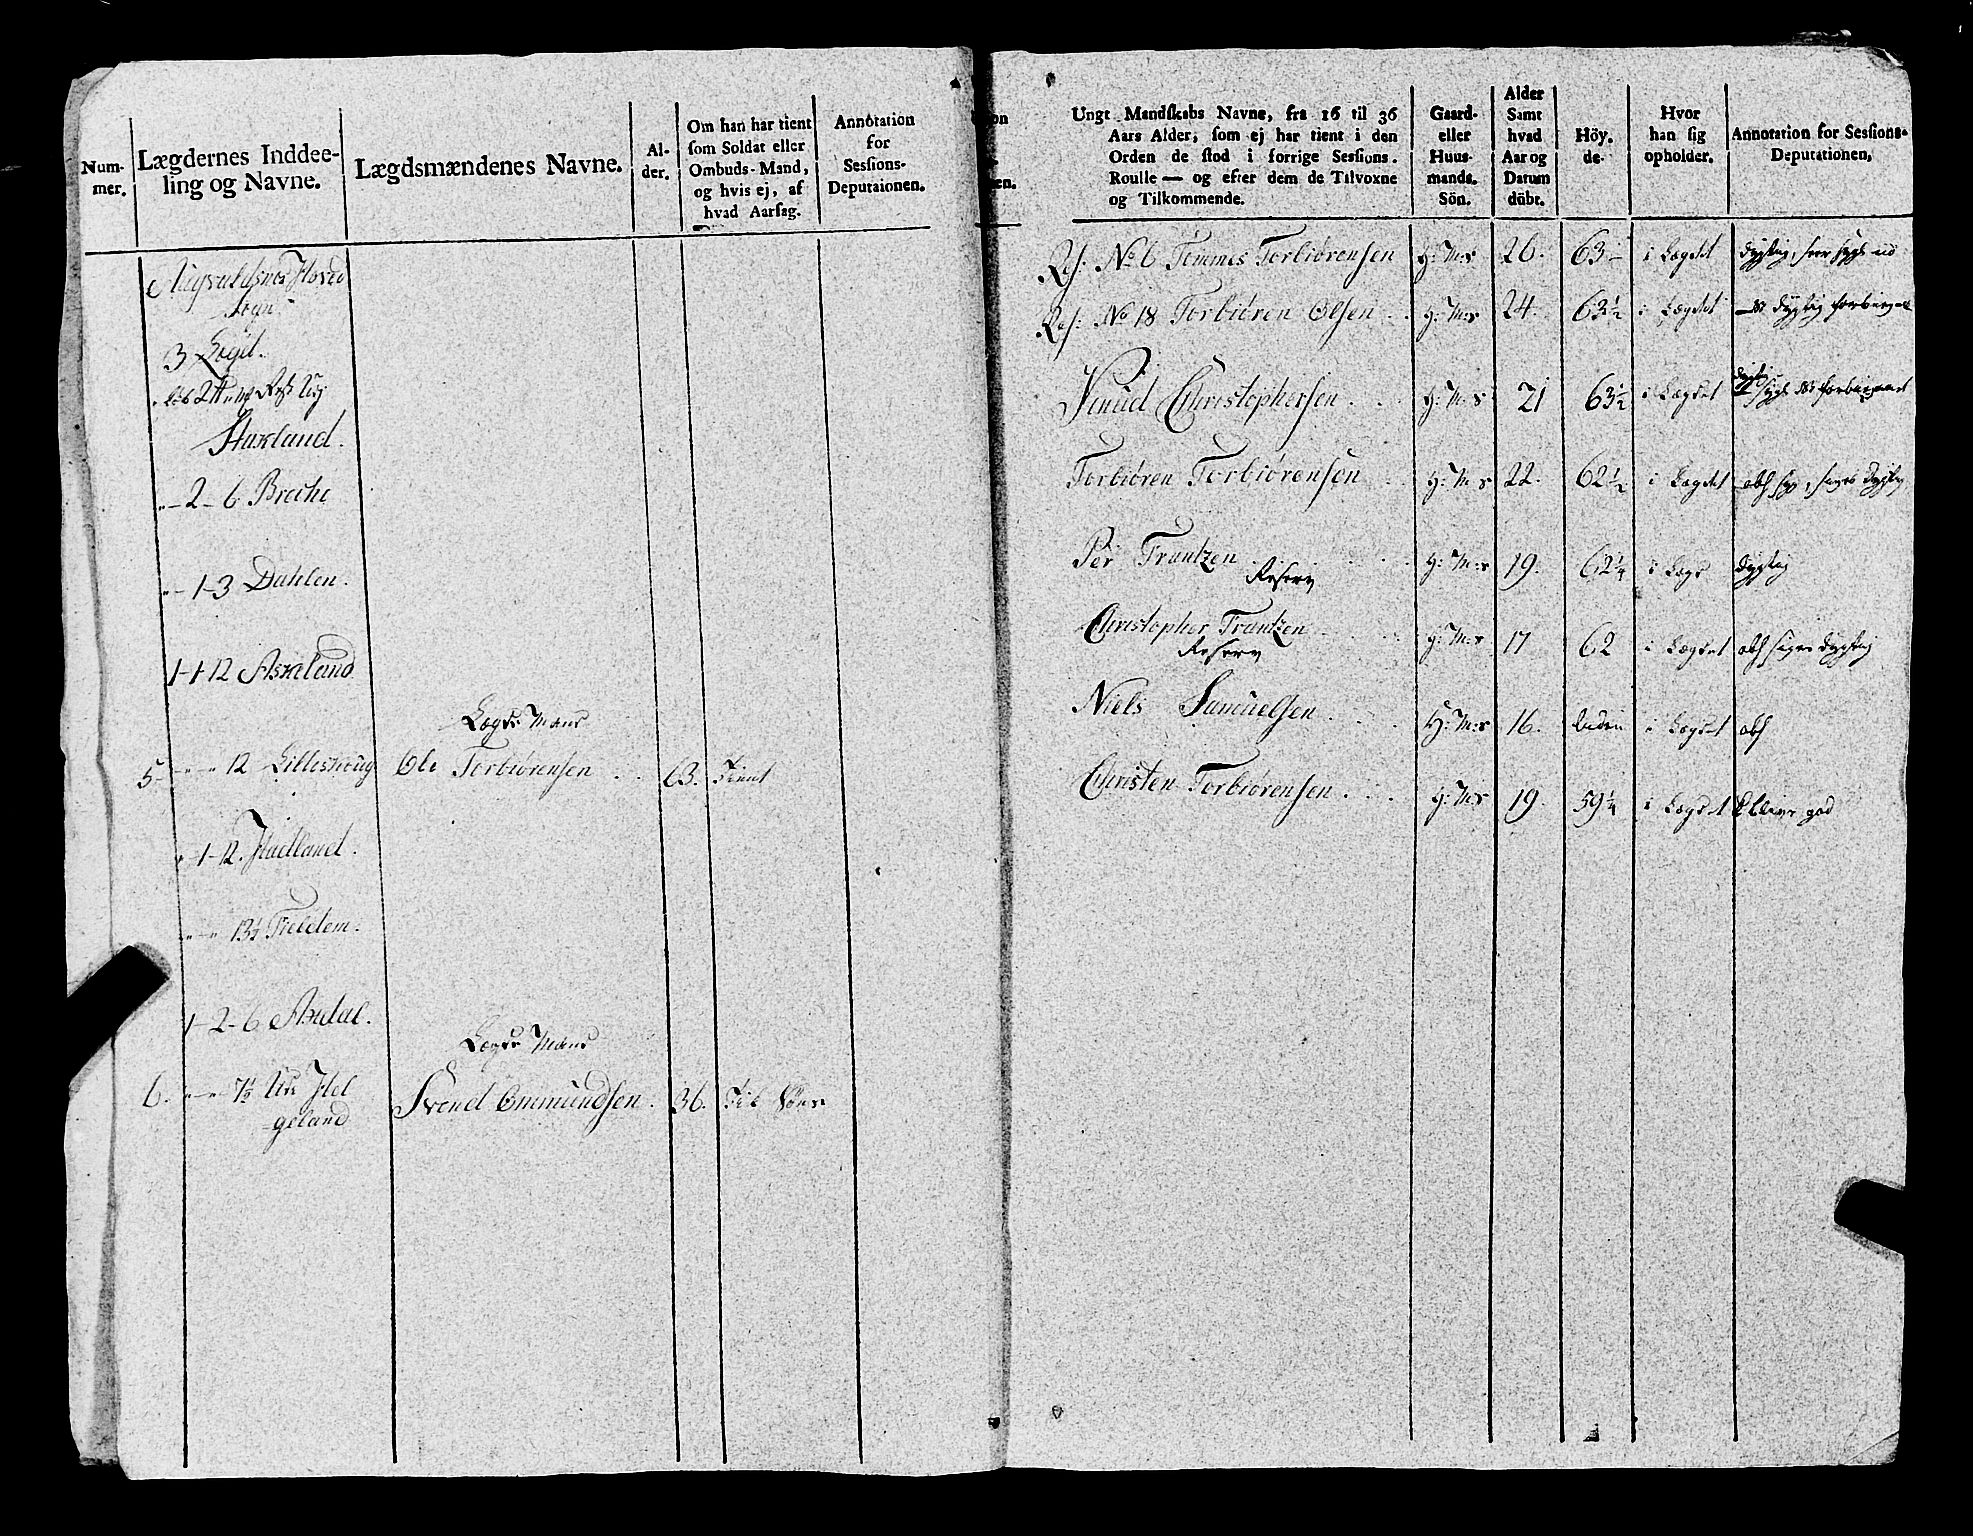 Num-
mer.
Lægdernes Inddee-
ling og Navne.
Lægdsmændenes Navne.
Al-
der.
Om han har tient
som Soldat eller
Ombuds-Mand,
og hvis ej, af
hvad Aarsag.
Annotation
for
Sessions-
Deputaionen.
Augvaldsnæs Hoved
Sogn
3 Lægd.
Huxland.
" - 2 - 6 Breche
" - 1 - 3 Dahlen.
1 - 1 - 12 Axeland
Lægds Mand
5 - " - " 12 Lilleskoug Ole Torbiørensen . . 63. Tient
" - 1 - 12. Hadland.
" - " 13½ Tieldem.
1 - 2 - 6 Axdal.
Lægds Mand
6. " - " 7½ Hel
geland
Svend Ommundsen. 36.
on
en.
Ungt Mandskabs Navne, fra 16 til 36
Aars Alder, som ej har tient i den
Orden de stod i forrige Sessions.
Roulle — og efter dem de Tilvoxne
og Tilkommende.
Gaard-
eller
Huus-
mands.
Sön.
Alder
Samt
hvad
Aar og
Datum
döbt.
Höy.
de.
Hvor
han sig
opholder.
Annotation for Sessions-
Deputationen,
Res. No 6 Tommes Torbiørensen G: M: S 26. 63 - i Lægdet dygtig,
Res: No 18 Torbiøren Olsen . . G: M: S 24. 63½ i Lægdet dygtig forbigaaet
Knud Christophersen . . . G: M: S 21 63½ i Lægdet forbigaaet
Torbiøren Torbiørensen . . G: M: S 22. 62½ i Lægdet dygtig
Per Frantzen . . . G: M: S 19. 62¼ i Lægd dygtig
Reserv
Christopher Frantzen . . . G: M: S 17 62 i Lægdet obs siges dygtig
Reserv
Niels Samuelsen . . . G: M: S 16. liden i Lægdet obs
Christen Torbiørensen . . . G: M: S 19. 59¼ i Lægdet bliver god